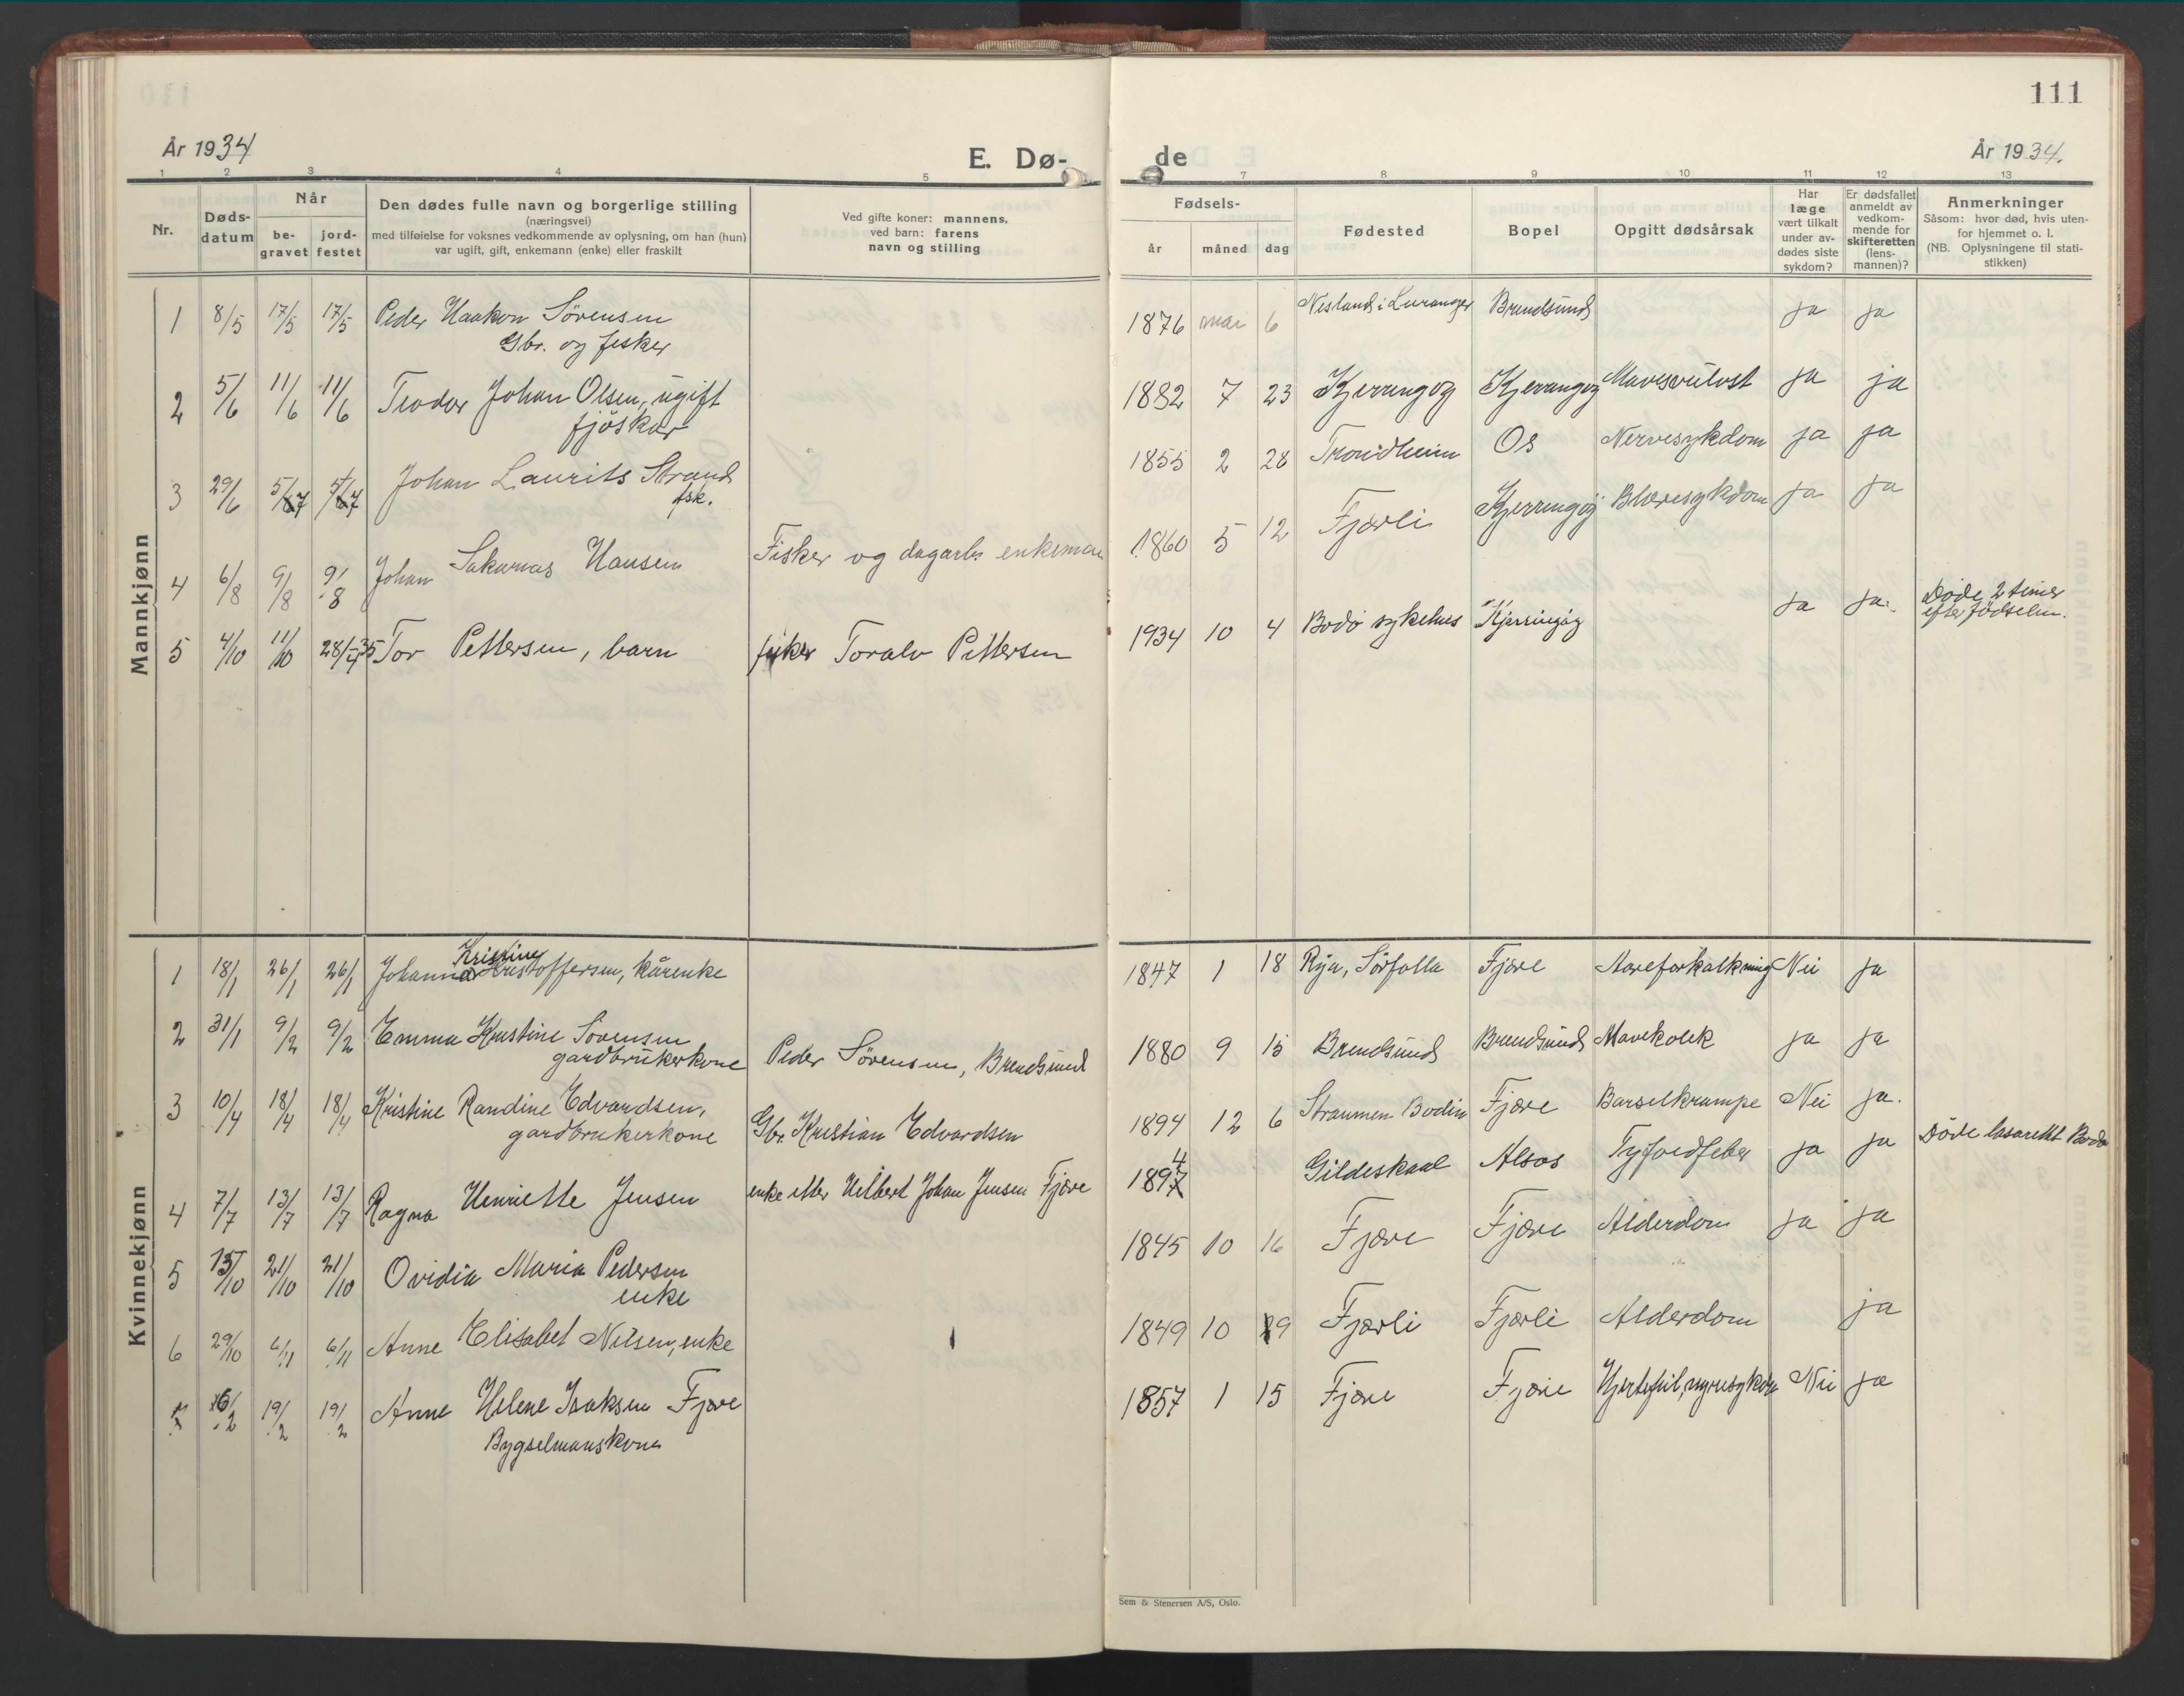 111
År 1934
E. Dø-
de
År 1934.
1 2 3 4 5 7 8 9 10 11 12 13
Nr.
Døds-
datum
Når
be-
gravet
jord-
festet
Den dødes fulle navn og borgerlige stilling
(næringsvei)
med tilføielse for voksnes vedkommende av oplysning, om han (hun)
var ugift, gift, enkemann (enke) eller fraskilt
Ved gifte koner: mannens,
ved barn: farens
navn og stilling
Fødsels-
år
måned
dag
Fødested
Bopel
Opgitt dødsårsak
Har
læge
vært tilkalt
under av-
dødes siste
sykdom?
Er dødsfallet
anmeldt av
vedkom-
mende for
skifteretten
(lens-
mannen)?
Anmerkninger
Såsom: hvor død, hvis uten-
for hjemmet o. l.
(NB. Oplysningene til stati-
stikken)
Mannkjønn
1 8/5 17/5 17/5 Peder Haakon Sørensen 1876 mai 6 Nesland i Leiranger Brendsund ja ja
Gbr. og fisker
2 5/6 11/6 11/6 Teodor Johan Olsen, ugift 1882 7 23 Kjerringøy Kjerringøy Mavesvulst ja ja
fjøskar
3 29/6 5/7 5/7 Johan Laurits Strand 1855 2 28 Trondheim Os Nervesykdom ja ja
fsk.
4 6/8 9/8 9/8 Johan Sakarias Hansen Fisker og dagarb. enkeman 1860 5 12 Fjærli Kjerringøy Blæresykdom ja ja
5 4/10 11/10 28/4-35 Tor Pettersen, barn fisker Toralv Pettersen 1934 10 4 Bodø sykehus Kjerringøy ja ja. Døde 2 timer
efter fødselen.
Kvinnekjønn
Kristine
1 18/1 26/1 26/1 Johanna Kristoffersen, kårenke 1847 1 18 Røa, Sørfolla Fjære Aareforkalkning Nei ja
2 31/1 9/2 9/2 Emma Kristine Sørensen 1880 9 15 Brendsund Brendsund Mavekolik ja ja
gardbrukerkone Peder Sørensen, Brendsund
3 10/4 18/4 18/4 Kristine Randine Edvardsen, 1894 12 6 Straumen Bodin Fjære Barselkrampe Nei ja.
gardbrukerkone Gbr. Kristian Edvardsen
4 7/7 13/7 13/7 Ragna Henriette Jensen enke etter Hilbert Johan Jensen Fjære 1894 Gildeskaal Alsos Tyfoidfeber ja ja Døde lasarettet Bodø
5 15/10 21/10 21/10 Ovidia Maria Pedersen 1845 10 16 Fjære Fjære Alderdom ja ja
enke
6 29/10 6/11 6/11 Anne Elisabet Nilsen, enke 1849 10 29 Fjærli Fjærli Alderdom ja
16/2 19/2 19/2 Anne Helene Isaksen Fjære 1857 1 15 Fjære Fjære Hjertefeil, nyresykdom Nei ja
Bygselmanskone
Sem & Stenersen A/S, Oslo.